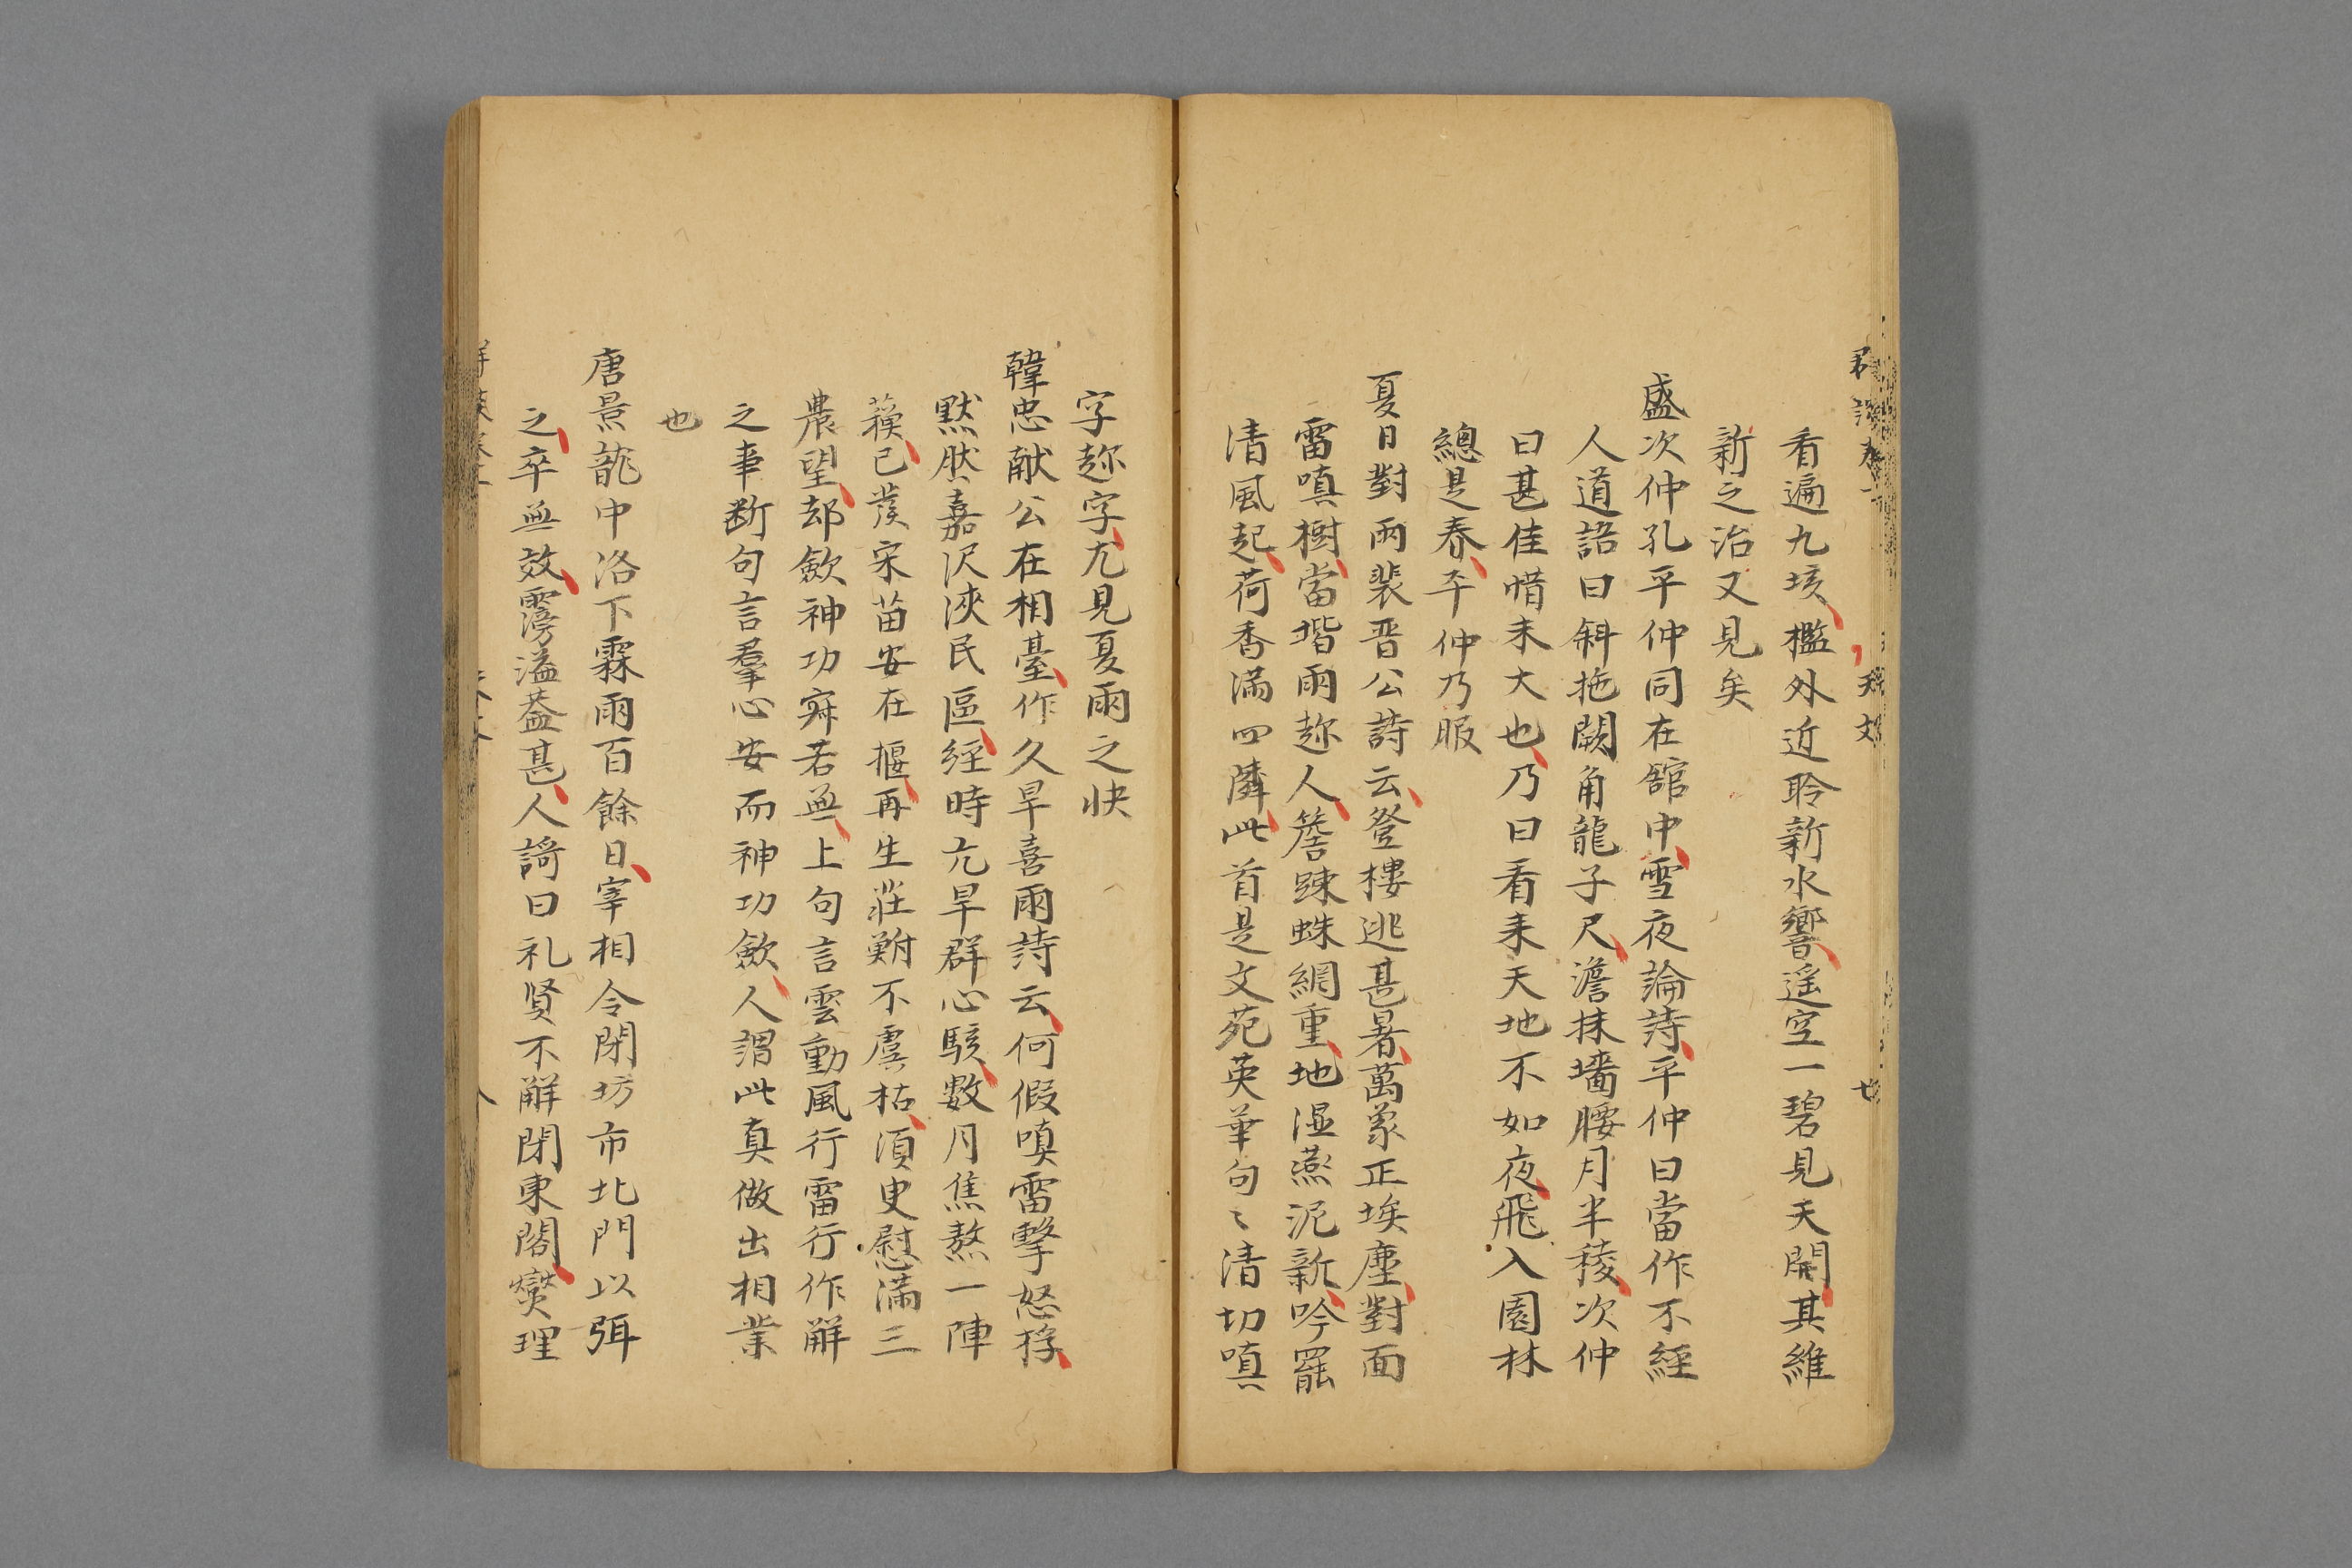 天文
看遍九垓檻外近聆新水響遥空一碧見天開其維
新之治又見矣
盛次仲孔平仲同在舘中雪夜論詩平仲曰當作不經
人道語曰斜拖闕角龍子尺澹抹墻腰月半稜次仲
曰甚佳惜未大也乃曰看来天地不如夜飛入園林
總是春平仲乃服
夏日對雨裴晋公詩云登樓逃甚暑萬象正埃塵對面
雷嗔樹當堦雨趂人簷踈蛛網重地湿燕泥新吟罷
清風起荷香滿四隣此首是文苑英華句〻清切嗔
字趂字尤見夏雨之快
韓忠献公在相臺作久旱喜雨詩云何假嗔雷擊怒桴
默然嘉沢浹民區經時亢旱群心駭數月焦熬一陣
蘓已發宋苗安在揠再生莊鮒不虞枯湏臾慰滿三
農望却斂神功寂若無上句言雲動風行雷行作解
之事断句言羣心安而神功斂人謂此真做出相業
也
唐景龍中洛下霖雨百餘日宰相令閉坊市北門以弭
之卒無效霶溢葢甚人謌曰礼贤不解開東閣燮理